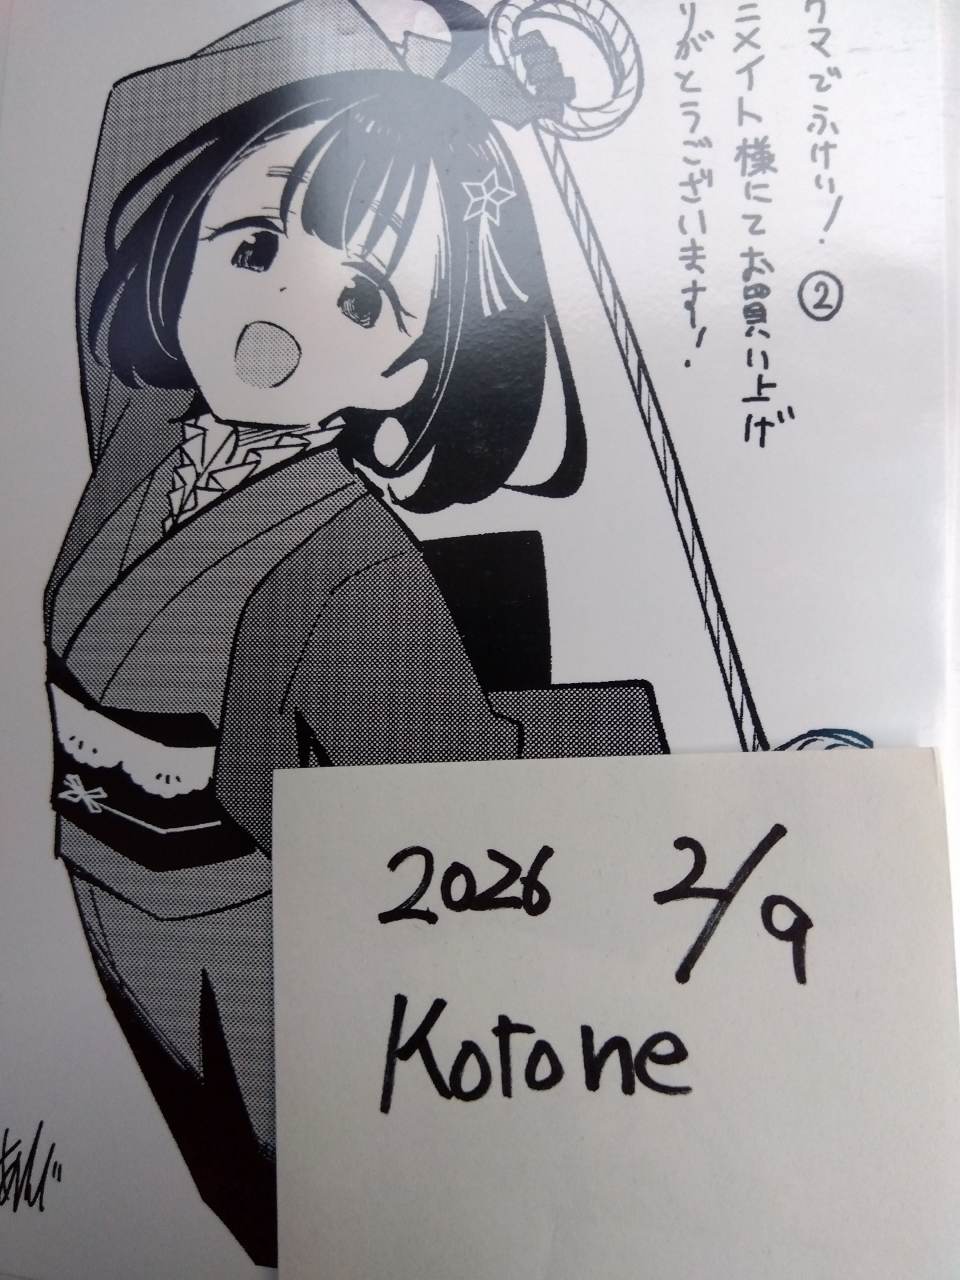 クマでふけい! ②
ニメイト様にてお買い上げ
りがとうございます!
2026 2/9
Kotone